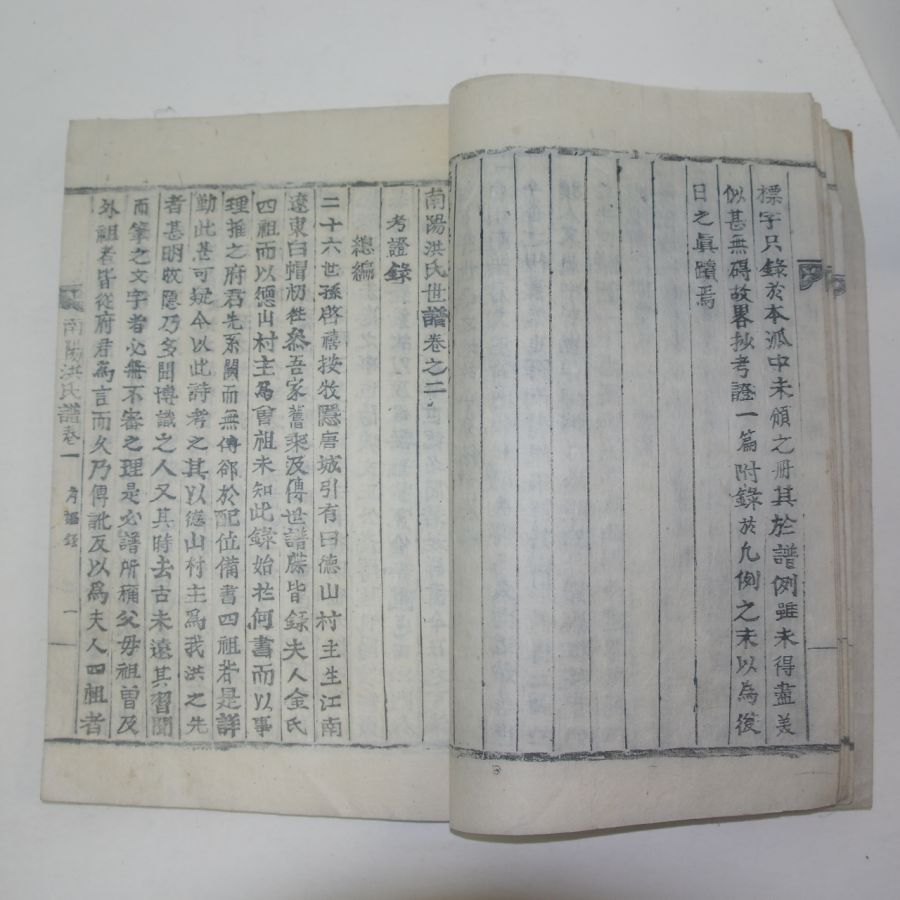 標字只錄於本派中未頒之冊其於譜例雖未得盡美
似甚無碍故畧抄考證一篇附錄於凡例之末以為後
日之眞蹟焉
南陽洪氏世譜卷之二
考證錄
總編
二十六世孫啓禧按牧隱唐城引有曰德山村主生江南
遼東白帽初從叅吾家舊乘及傳世譜牒皆錄夫人金氏
四祖而以德山村主爲曾祖未知此錄始於何書而以事
理推之府君先系闕而無傳卻於配位備書四祖若是詳
勤此甚可疑今以此詩考之其以德山村主爲我洪之先
者甚明牧隱乃多聞博識之人又其時去古未遠其習聞
而筆之文字者必無不審之理是必譜所稱父母祖曾及
外祖者皆從府君爲言而久乃傳訛及以爲夫人四祖者
南陽洪氏譜卷一
一